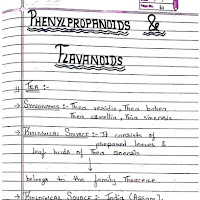 PHENYLPROPANOIDS &
FLAVANOIDS
TEA :-
SYNONYMS :- Thea viridis, Thea bohea
Thea camellia, Thea sinensis
BIOLOGICAL SOURCE :- It consists of
prepared leaves &
leaf buds of Thea sinensis
↓
belongs to the family Theaceae
BIOLOGICAL SOURCE :- India (Assam),